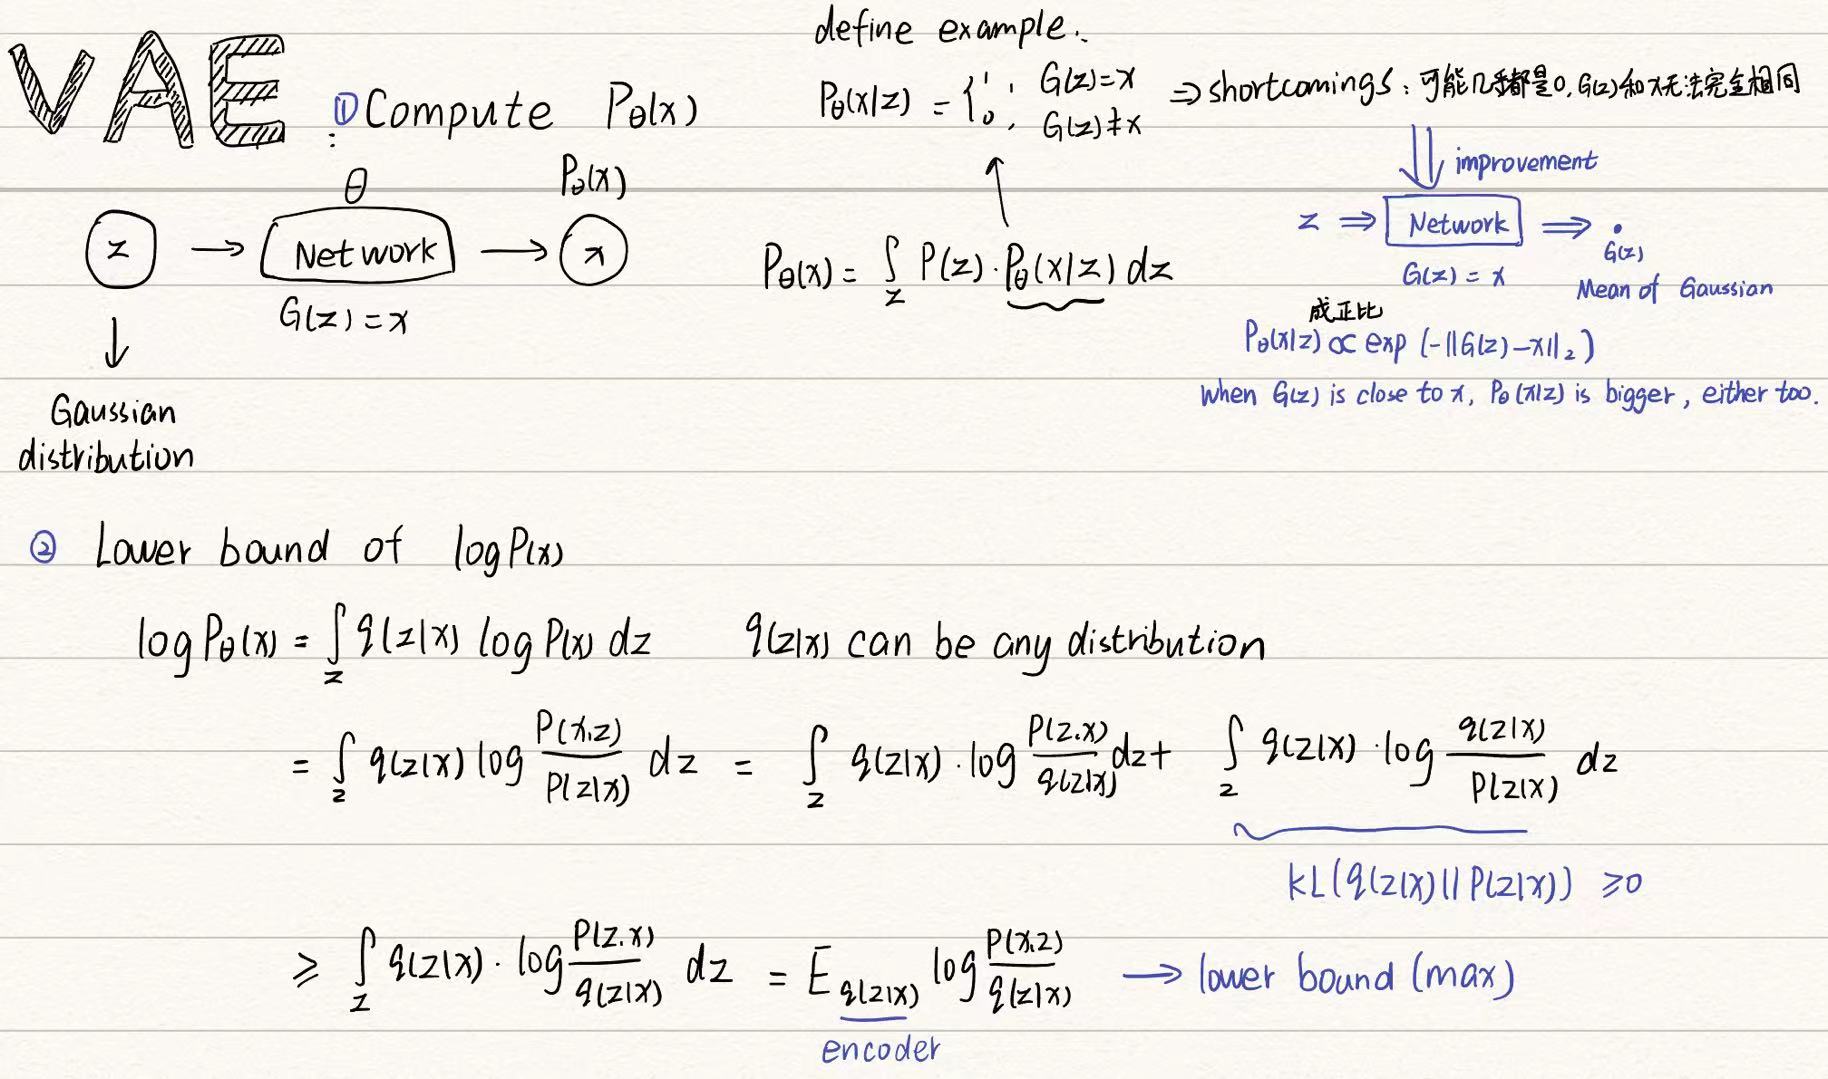 VAE
① Compute Pθ(x)
:
θ
Pθ(x)
z → Network → x
G(z) = x
↓
Gaussian
distribution
define example.
Pθ(x|z) = { 1, G(z)=x
0, G(z)≠x
⇒ shortcomings: 可能几乎都是0, G(z)和x无法完全相同
improvement
z ⇒ Network ⇒ .
G(z)
G(z) = x
Mean of Gaussian
成正比
Pθ(x|z) ∝ exp (-||G(z)-x||₂)
when G(z) is close to x, Pθ(x|z) is bigger, either too.
Pθ(x) = ∫z P(z)·Pθ(x|z) dz
② Lower bound of log P(x)
log Pθ(x) = ∫z q(z|x) log P(x) dz q(z|x) can be any distribution
= ∫z q(z|x) log P(x,z)/P(z|x) dz = ∫z q(z|x)·log P(z,x)/q(z|x) dz + ∫z q(z|x)·log q(z|x)/P(z|x) dz
KL(q(z|x)||P(z|x)) ≥0
≥ ∫z q(z|x)·log P(z,x)/q(z|x) dz = E q(z|x) log P(x,z)/q(z|x) → lower bound (max)
encoder